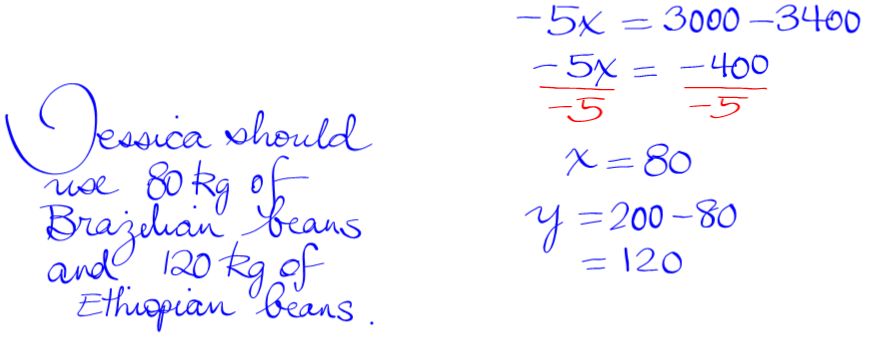 -5x = 3000 - 3400
-5x = -400
-5 -5
x = 80
y = 200 - 80
= 120
Jessica should
use 80 kg of
Brazilian beans
and 120 kg of
Ethiopian beans.